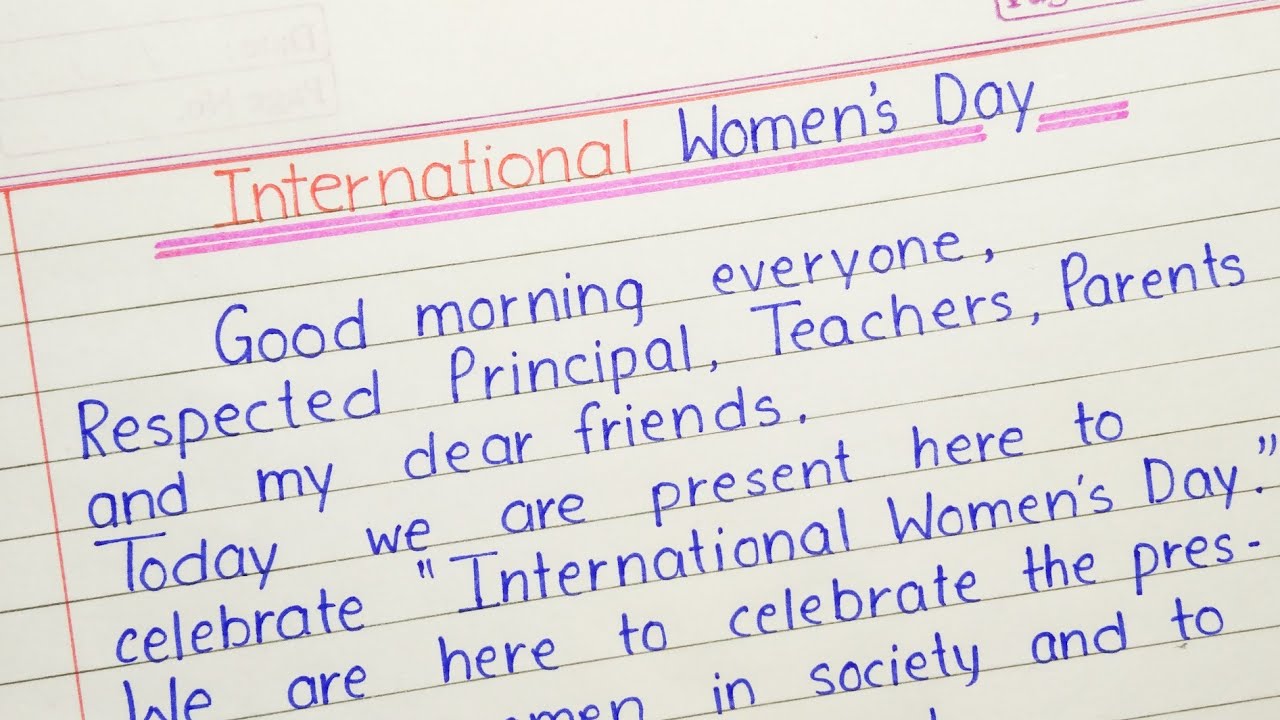 International Women's Day
Good morning everyone,
Respected Principal, Teachers, Parents
and my dear friends.
Today we are present here to
celebrate "International Women's Day."
We are here to celebrate the pres-
in society and to